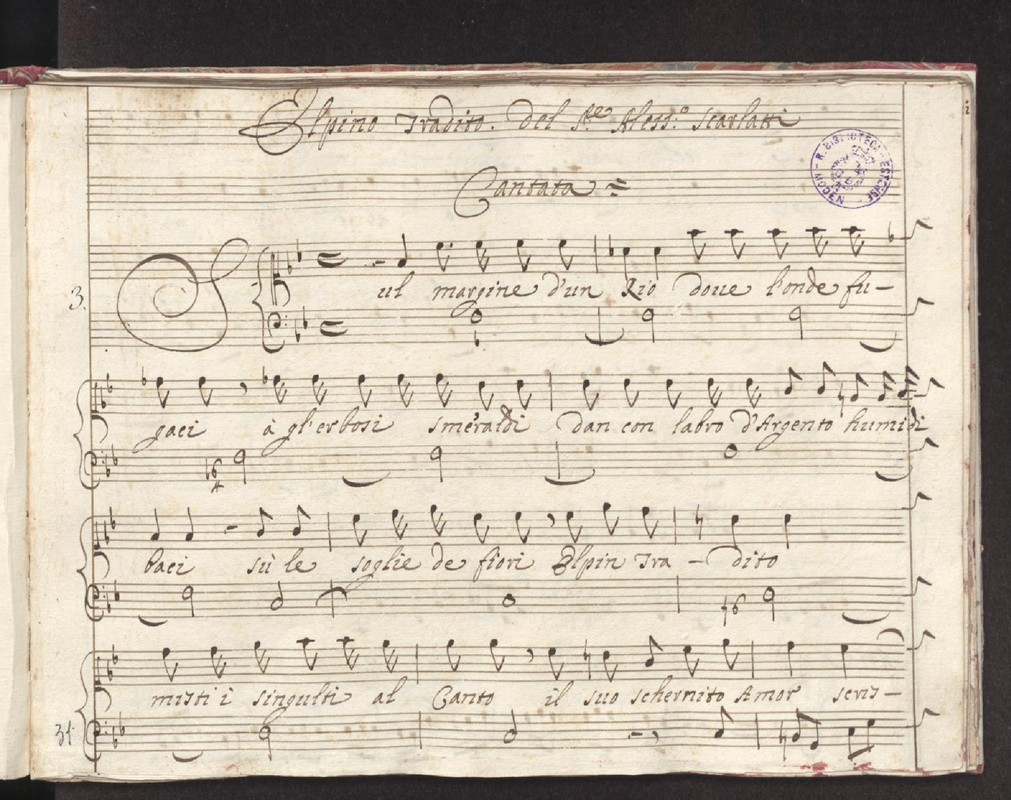 Elpino Tradito. del S.re Aless.o Scarlatti
Cantata =
R. BIBLIOTECA ESTENSE MODEN
3.
Sul margine d'un Rio doue l'onde fu-
gaci à gl'erbosi smeraldi dan con labro d'Argento humidi
baci sù le soglie de fiori Elpin Tra-dito
misti i singulti al Canto il suo schernito Amor scris-
31